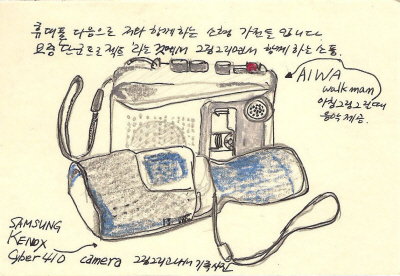 휴대폰 다음으로 저와 함께하는 소형 가전들 입니다
요즘 단군프로젝트 라는 것에서 그림그리면서 함께하는 소품.
AIWA
walkman
아침 그림 그릴때
음악제공.
SAMSUNG
KENOX
Cyber 410 camera 그림그리고나서 기록사진